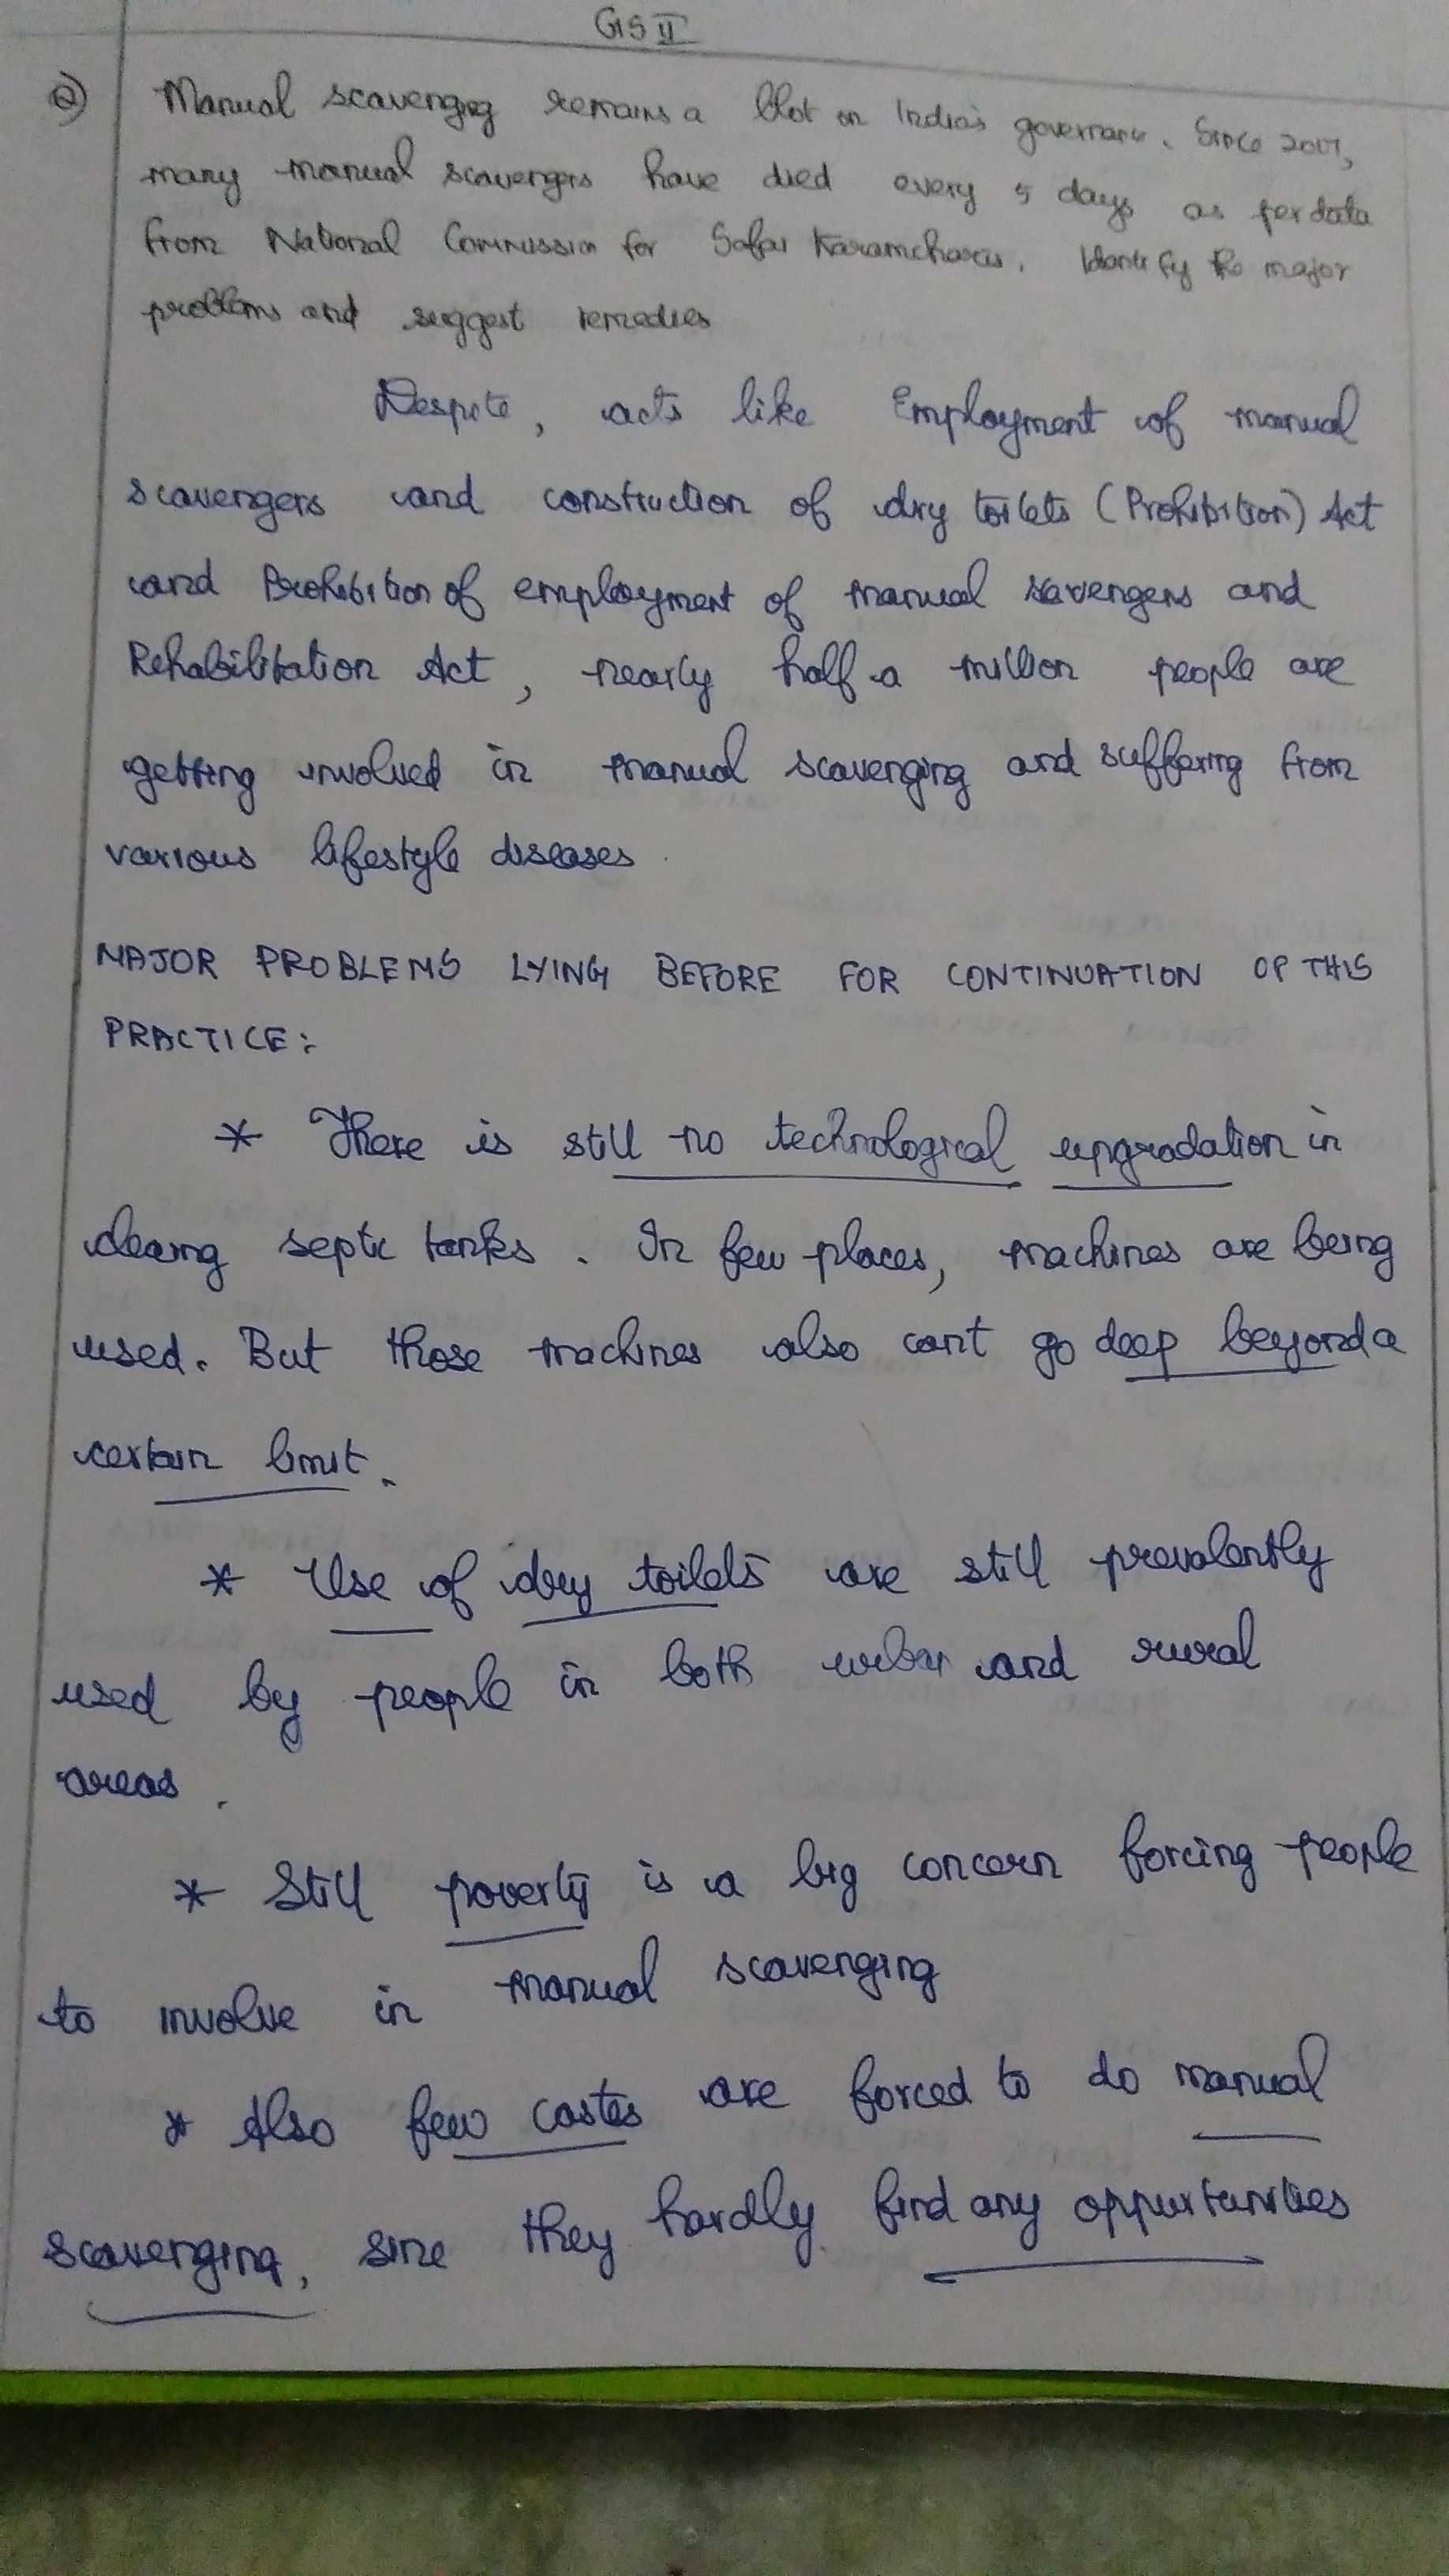 GS II
Q) Manual scavenging remains a blot on India's governance. Since 2017,
many manual scavengers have died every 5 days as per data
from National Commission for Safai Karamcharis. Identify the major
problems and suggest remedies
Despite, acts like Employment of manual
scavengers and construction of dry toilets (Prohibition) Act
and Prohibition of employment of manual scavengers and
Rehabilitation Act, nearly half a million people are
getting involved in manual scavenging and suffering from
various lifestyle diseases.
MAJOR PROBLEMS LYING BEFORE FOR CONTINUATION OF THIS
PRACTICE:
* There is still no technological upgradation in
cleaing septic tanks. In few places, machines are being
used. But those machines also can't go deep beyond a
certain limit.
* Use of dry toilets are still prevalently
used by people in both urban and rural
areas.
* Still poverty is a big concern forcing people
to involve in manual scavenging
* Also few castes are forced to do manual
scavenging, sine they hardly find any oppurtunities